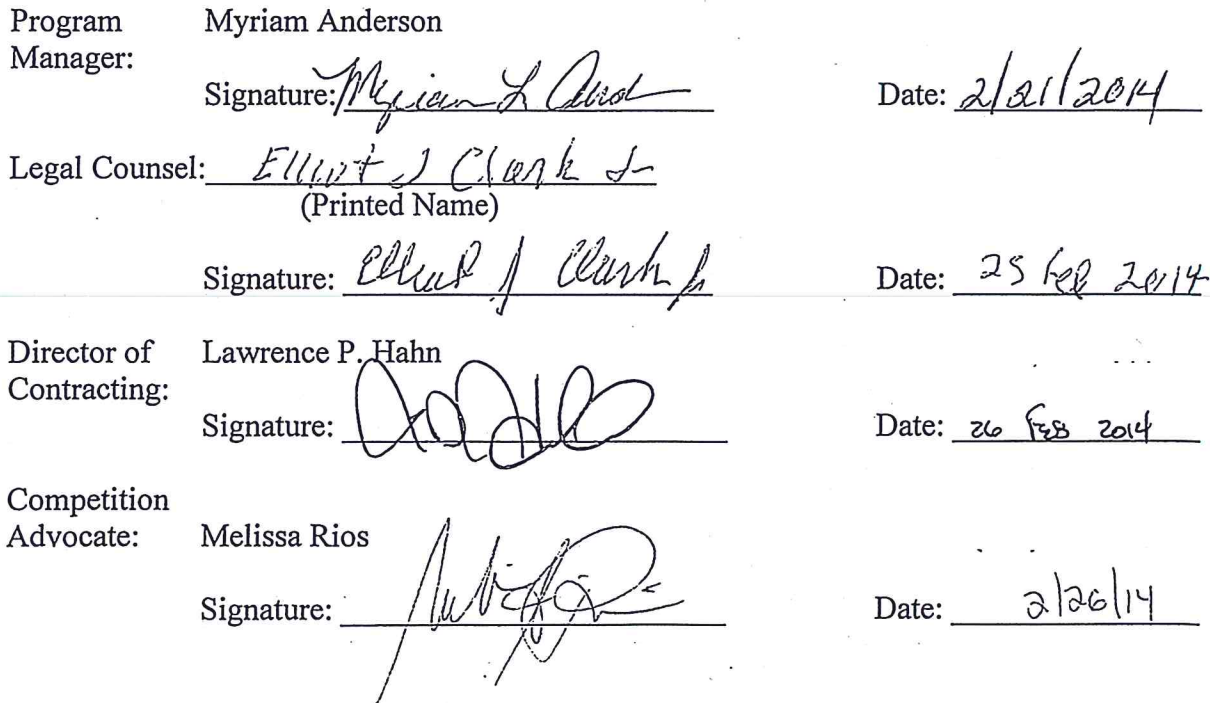 Program Myriam Anderson
Manager:
Signature: Myriam L And Date: 2/21/2014
Legal Counsel: Elliot J Clark Jr
(Printed Name)
Signature: Elliot J Clark Jr Date: 25 Feb 2014
Director of Lawrence P. Hahn
Contracting:
Signature: Date: 26 FEB 2014
Competition
Advocate: Melissa Rios
Signature: Date: 2/26/14